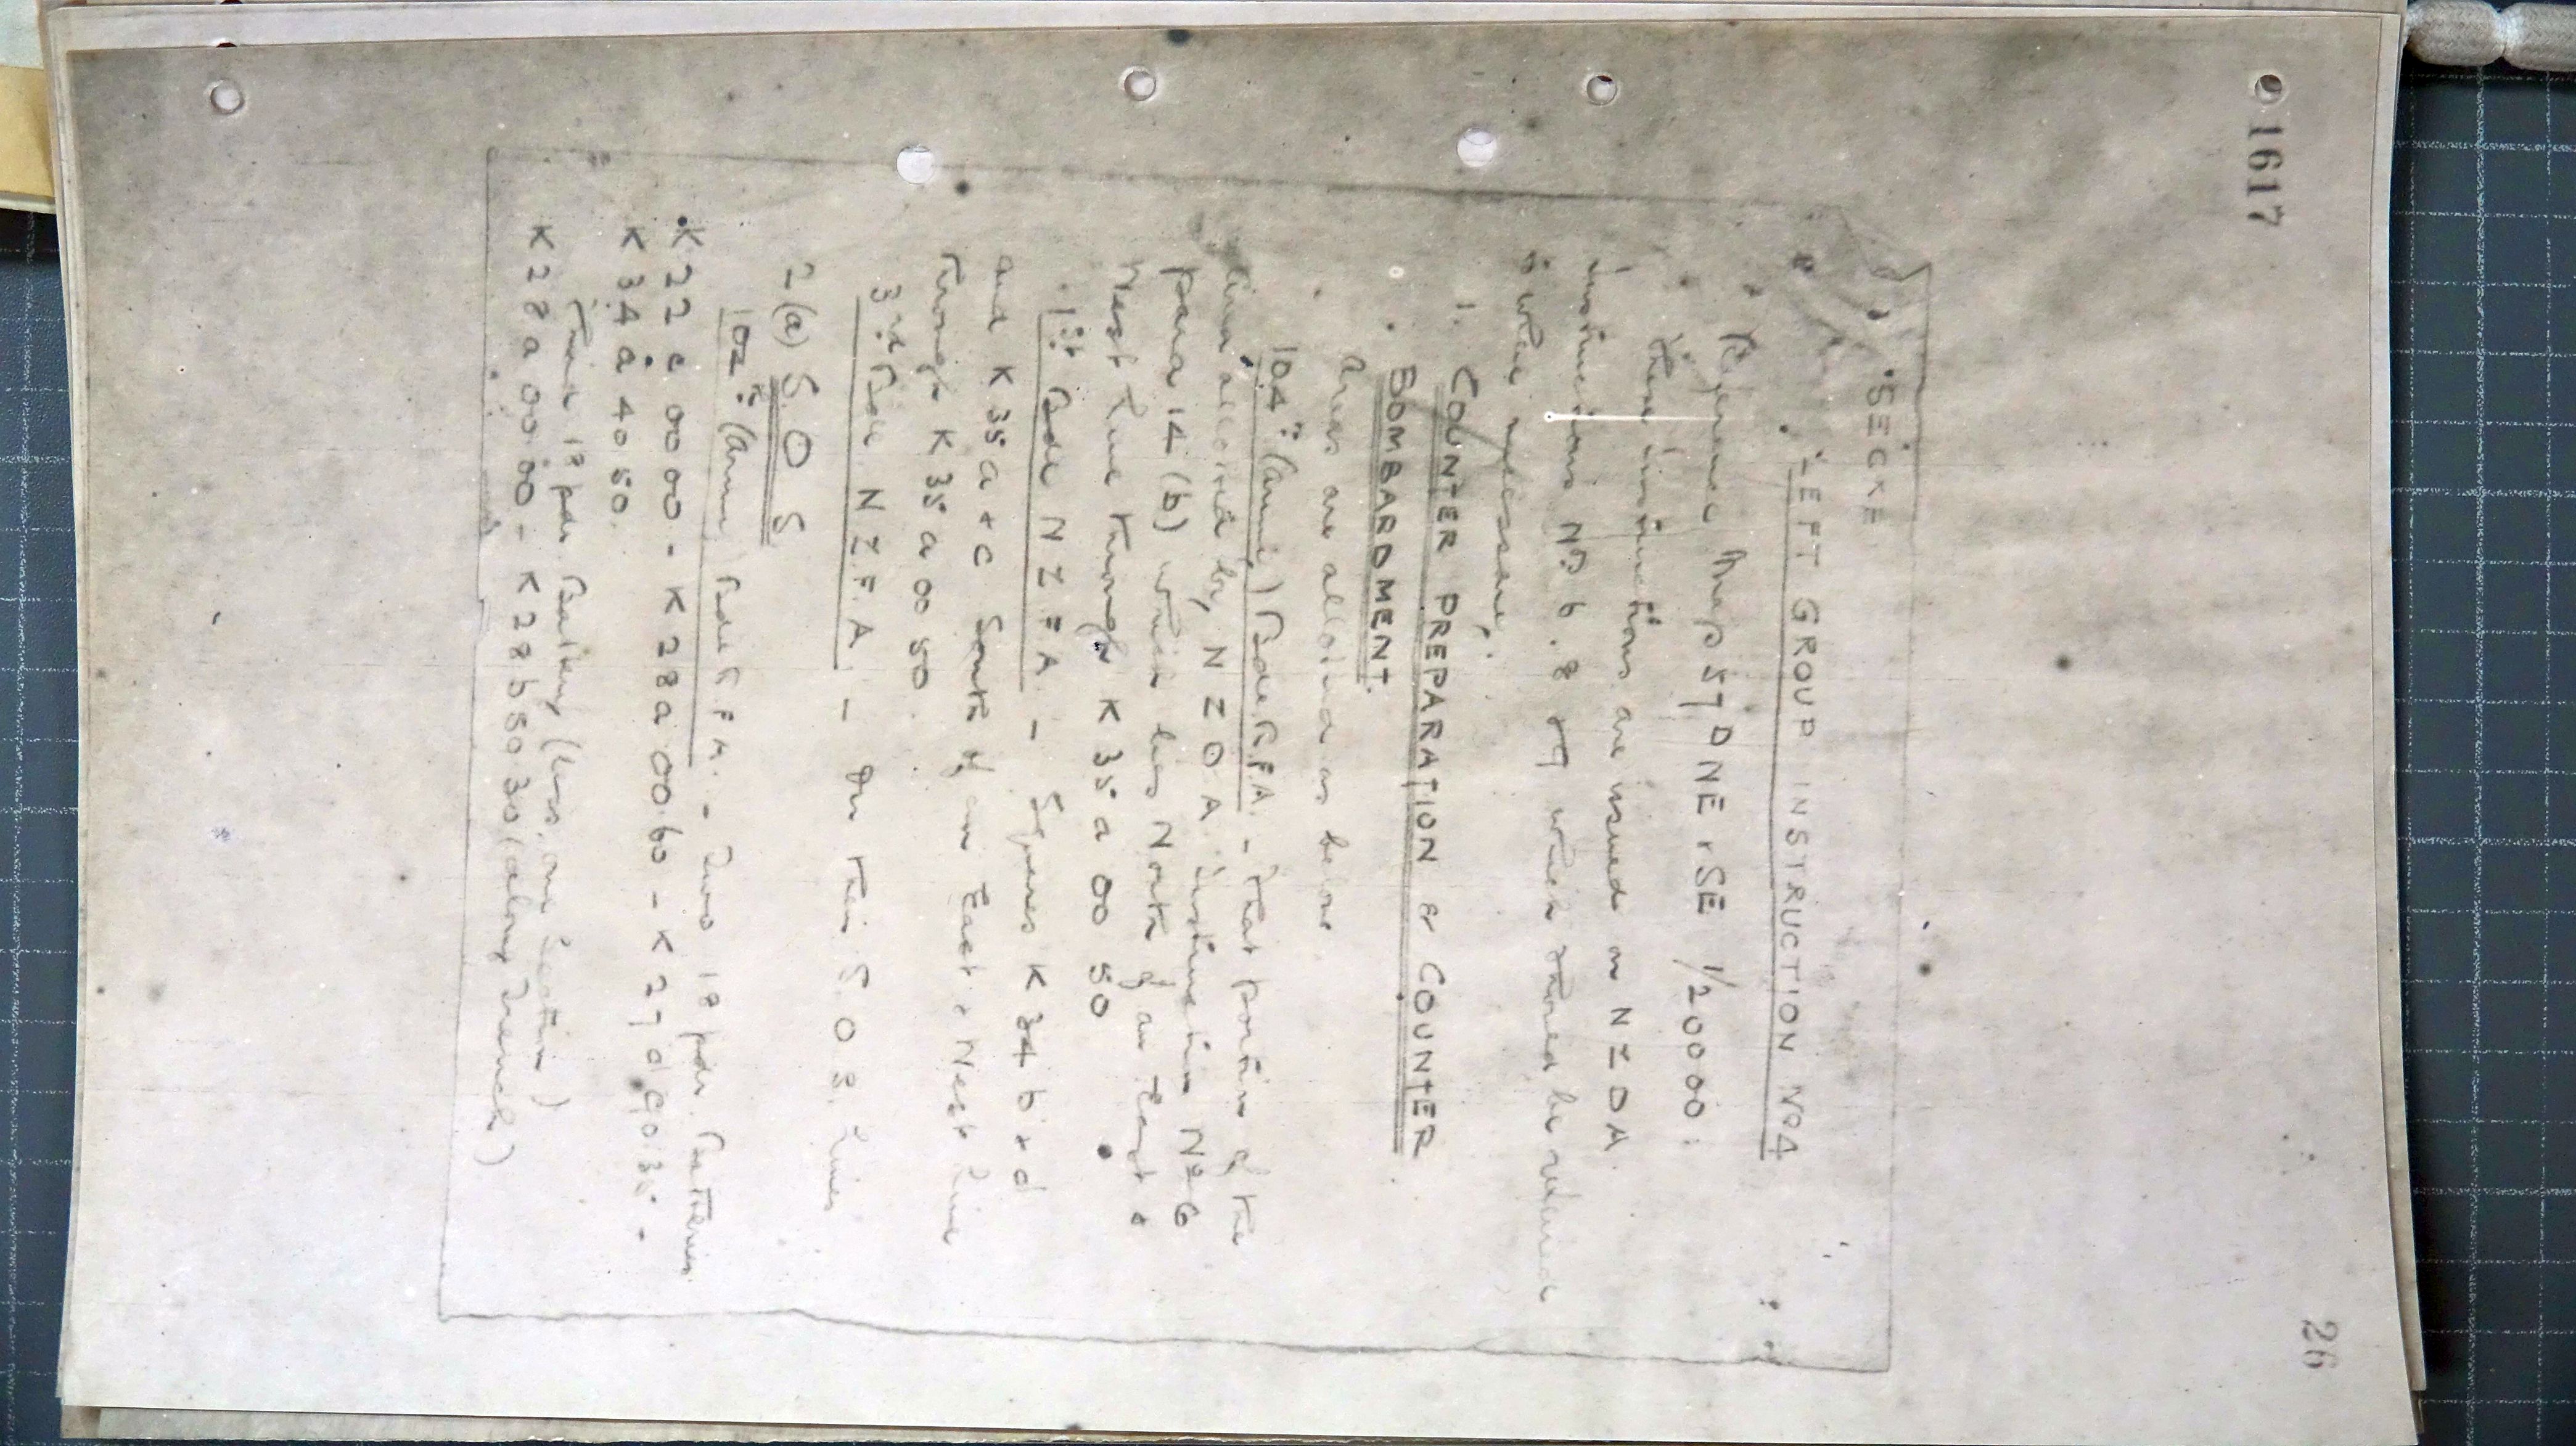 1617
26
SECRE
LEFT GROUP INSTRUCTION Nº 4
Reference Map 57D NE & SE 1/20000.
These instructions are issued on NZDA
instructions Nº 6. 8 & 9 which should be referred
to when necessary.
1. COUNTER PREPARATION & COUNTER
BOMBARDMENT.
Areas are allotted as below
104th (Army) Bde R.F.A. - that portion of the
area allotted by N Z D A instruction Nº 6
para 14 (b) which lies North of an East &
West line through K 35 a 00 50
1st Bde N Z F A - Squares K 34 b & d
and K 35 a & c South of an East & West line
through K 35 a 00 50.
3rd Bde N Z F A. - On their S.O.S. lines
2 (a) S. O. S.
(Army) Bde R F A. - Two 18 pdr. Batteries
K 22 c 00 00 - K 28 a 00.60 - K 27 d 90 35 -
K 34 a 40 50.
Third 18 pdr. Battery (less one Section)
K 28 a 00 00 - K 28 b 50 30 (along Trench)